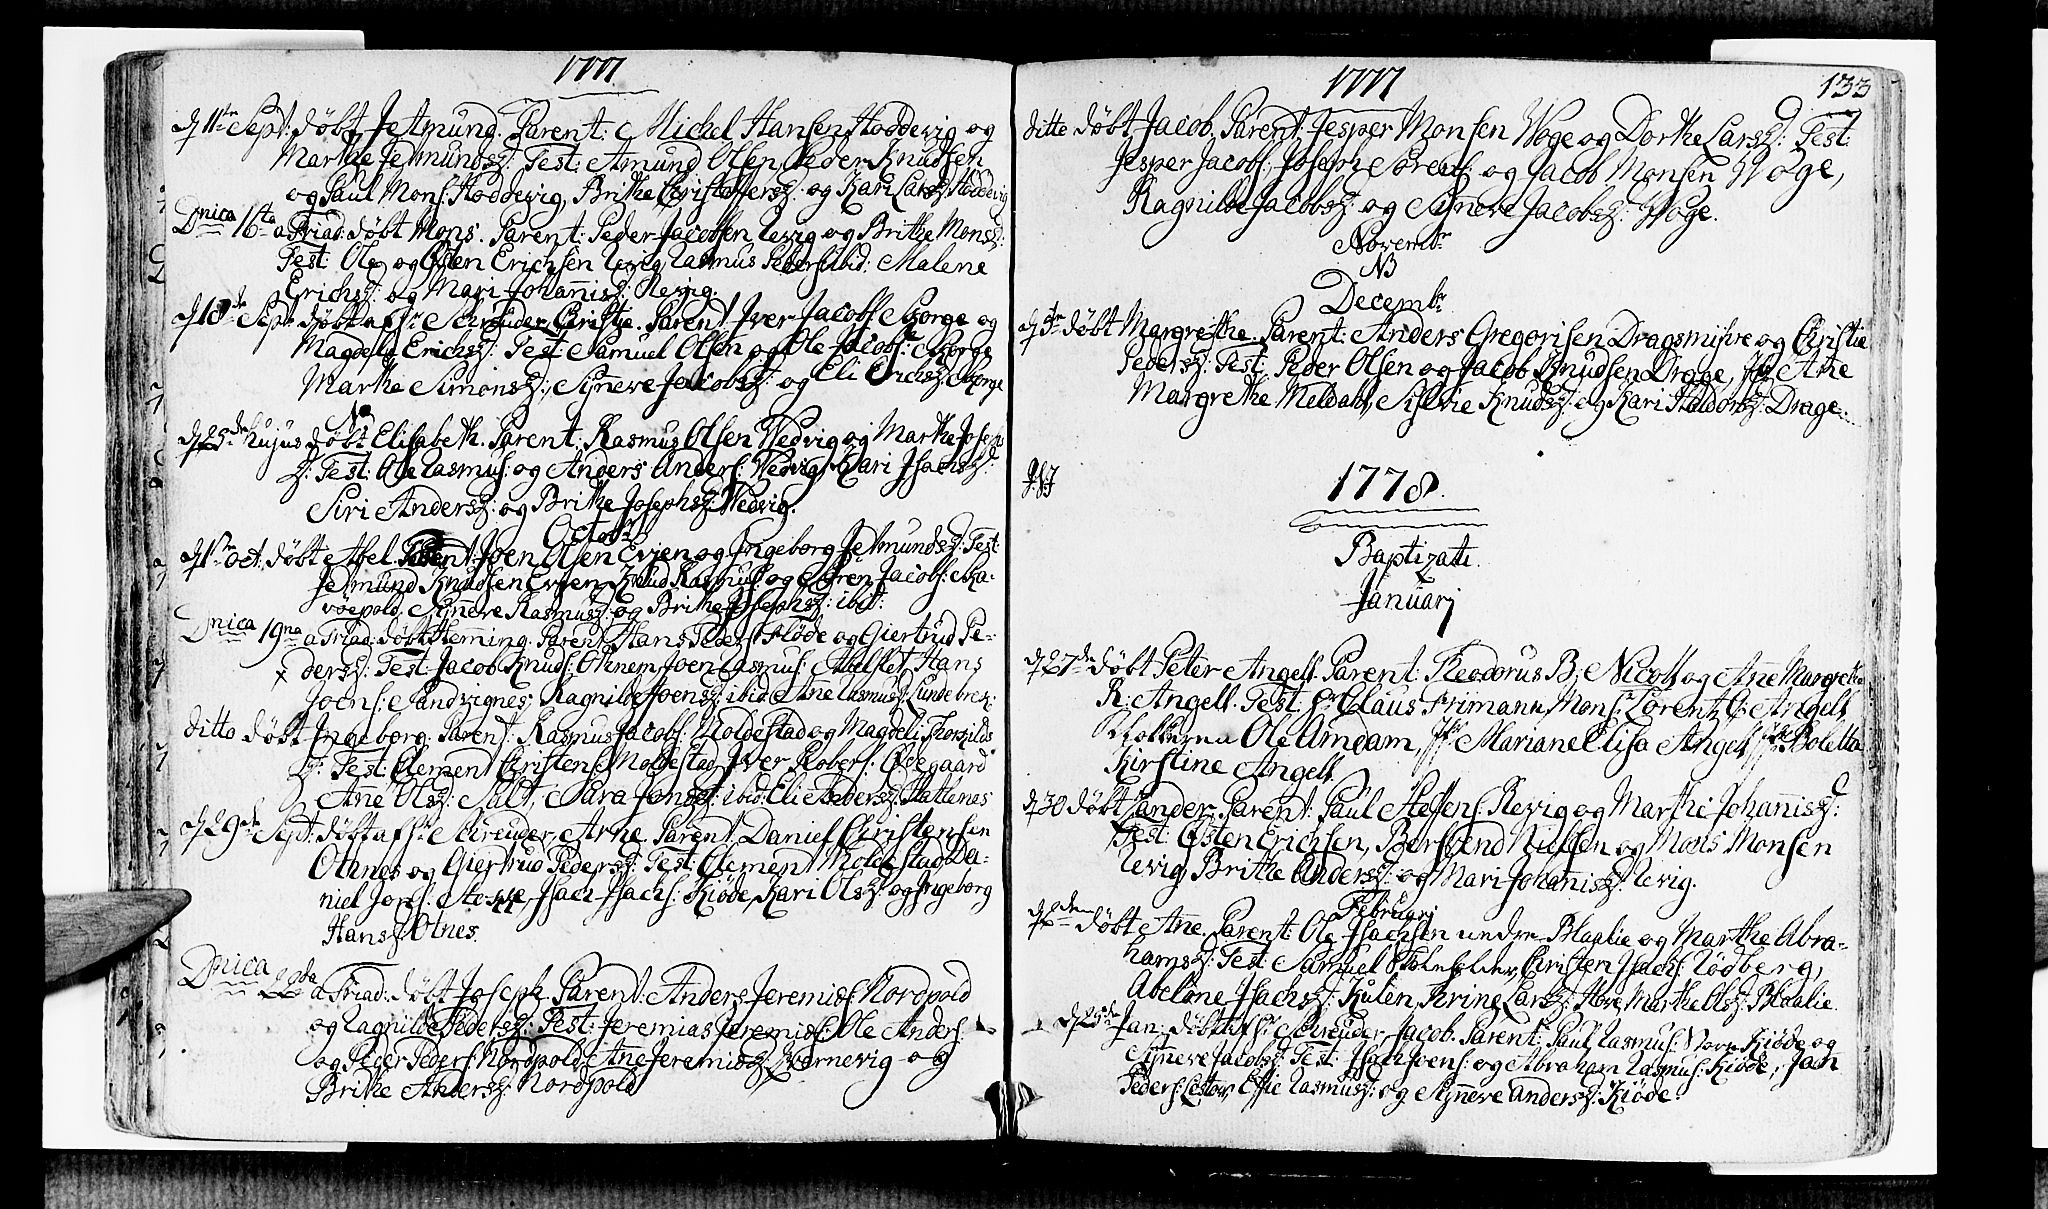 1777.
d 11te Sept: døbt Jetmund. Parent: Michel Hansen Hoddevig og
Marthe Jetmundsd: Test: Amund Olsen, Peder Knudsen
og Paul Mons: Hoddevig, Brithe Christophersd: og Kari Larsd: Hoddevig
Dnica 16ta a Triad: døbt Mons. Parent: Peder Jacobsen Revig og Brithe Monsd:
Test: Ole og Østen Erichsen Revig, Rasmus Peders: ibid: Malene
Erichsd: og Mari Johannisd: Revig.
d 18de Sept: døbt af Hr Schreuder Christie. Parent: Iver Jacobs: Borge og
Magdeli Erichsd: Test: Samuel Olsen og Ole Jacobs: Borge
Marthe Simonsd:, Synneve Jacobsd: og Eli Erichsd: Borge
d 25de hujus døbt Elisabeth. Parent: Rasmus Olsen Wedvig og Marthe Josephs
d: Test: Ole Rasmus: og Anders Anders: Wedvig, Kari Isachsd:
Siri Andersd: og Brithe Josephsd: Wedvig.
Octobr
d 1ste oct. døbt Abel. Parent: Joen Olsen Ervien og Ingeborg Jetmundsd: Test:
Jetmund Knudsen Ervien, Knud Rasmus: og Søren Jacobs:
Synneve Rasmusd: og Brithe Josephsd: ibid:
Dnica 19na a Triad: døbt Hemming. Parent: Hans Peders: Fløde og Giertrud Pe-
dersd: Test: Jacob Knuds: Othnem, Joen Rasmus: Hans
Joens: Sandvignes, Ragnilde Joensd: ibid: Ane Rasmusd: Lundebrek:
ditto døbt Ingeborg. Parent: Rasmus Jacobs: Moldestad og Magdeli Thorkilds
d: Test: Clement Christens: Moldestad, Iver Robers: Ødegaard
Anne Olsd: Salt, Sara Jonsd: ibid: Eli Andersd: Hatlenes
d 29de Sept: døbt af Hr Schreuder, Arne. Parent: Daniel Christensen
Othnes og Giertrud Pedersd: Test: Clement Moldestad, Da-
niel Jons: Isach Isachs: Kiøde, Kari Olsd: og Ingeborg
Hansd: Otnes.
Dnica 22da a Triad: døbt Joseph. Parent: Anders Jeremis: Nordpold
og Ragnilde Pedersd: Test: Jeremias Jeremis: Ole Anders:
og Peder Peders: Nordpold, Ane Jeremisd: Qvernevig og
Brithe Andersd: Nordpold
1777
133
ditto døbt Jacob. Parent: Jesper Monsen Woge og Dorthe Larsd: Test:
Jesper Jacobs:, Joseph Sørens: og Jacob Monsen Woge,
Ragnilde Jacobsd: og Synneve Jacobsd: Woge.
Novembr
NB
Decembr
døbt Margrethe. Parent: Anders Gregorisen Dragsmihre og Christie
Pedersd: Test: Peder Olsen og Jacob Knudsen Drage, Jfr Ane
Margrethe Meldahl, Silvie Knudsd: og Kari Haldorsd: Drage.
1778.
Baptizati.
Januarj
d 27de døbt Peter Angell. Parent: Theodorus B: Nicoll og Anne Margrethe
R: Angell. Test: Hr Claus Frimann, Mons: Lorentz A: Angell
Klokkeren Ole Amdam, Jfr Mariane Elisa Angell, Jfr Boletta
Kirstine Angell.
d 30 døbt Sander. Parent: Paul Steffens: Revig og Marthe Johannisd:
Test: Østen Erichsen, Bersvend Nielsen og Mons Monsen
Revig, Brithe Andersd: og Mari Johannisd: Revig.
Februarj
døbt Ane. Parent: Ole Isachsen under Blaalie og Marthe Abra-
hamsd: Test: Samuel Christen Isachs: Rødberg,
Abelone Isachsd: Kulen, Kring Larsd: Marthe Olsd: Blaalie.
d 25de Jan: døbt af Hr Schreuder Jacob. Parent: Paul Rasmus: Nore Kiøde og
Synneve Jacobsd: Test: Isach Ivers: og Abraham Rasmus: Kiøde, Jan
Peders: Leston, Effie Rasmusd: og Synneve Andersd: Kiøde.